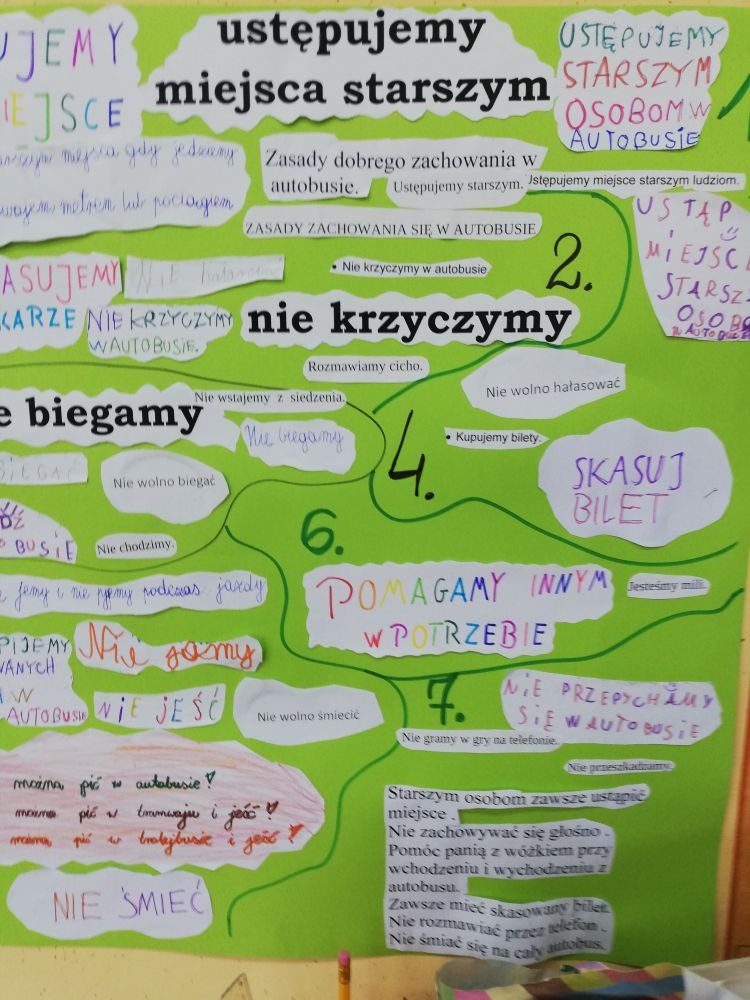 UJEMY
IEJSCE
ustępujemy
miejsca starszym
USTĘPUJEMY
STARSZYM
OSOBOM W
AUTOBUSIE
miejsca gdy jedziemy
metrem lub pociągiem
Zasady dobrego zachowania w
autobusie.
Ustępujemy starszym.
Ustępujemy miejsce starszym ludziom.
ZASADY ZACHOWANIA SIĘ W AUTOBUSIE
USTĄP
MIEJSC
STARSZ
OSOBO
W AUTOBUSIE
ASUJEMY
KARZE
NIE hałasować
• Nie krzyczymy w autobusie
2.
NIE KRZYCZYMY
W AUTOBUSIE.
nie krzyczymy
Rozmawiamy cicho.
Nie wolno hałasować
Nie wstajemy z siedzenia.
e biegamy
Nie biegamy
• Kupujemy bilety.
4.
SKASUJ
BILET
BIEGAĆ
Nie wolno biegać
BUSIE
Nie chodzimy.
6.
jemy i nie pijemy podczas jazdy
POMAGAMY INNYM
W POTRZEBIE
Jesteśmy mili.
PIJEMY
WANYCH
W
AUTOBUSIE
NIE JEŚĆ
Nie wolno śmiecić
7.
NIE PRZEPYCHAMY
SIĘ W AUTOBUSIE
Nie gramy w gry na telefonie.
Nie przeszkadzamy.
można pić w autobusie!
można pić w tramwaju i jeść!
można pić w trolejbusie i jeść!
NIE ŚMIEĆ
Starszym osobom zawsze ustąpić
miejsce .
Nie zachowywać się głośno .
Pomóc panią z wózkiem przy
wchodzeniu i wychodzeniu z
autobusu.
Zawsze mieć skasowany bilet.
Nie rozmawiać przez telefon .
Nie śmiać się na cały autobus.